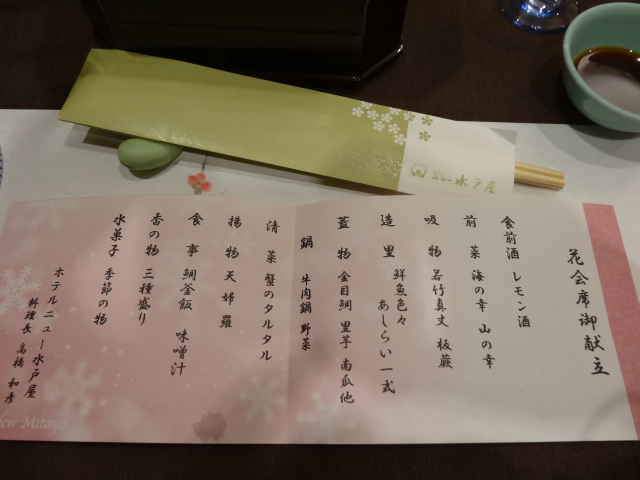 水戸屋
花会席御献立
食前酒 レモン酒
前菜 海の幸 山の幸
吸物 若竹真丈 板蕨
造里 鮮魚色々
あしらい一式
蓋物 金目鯛 里芋 南瓜他
鍋 牛肉鍋 野菜
清菜 蟹のタルタル
揚物 天婦羅
食事 鯛釜飯 味噌汁
香の物 三種盛り
水菓子 季節の物
ホテルニュー水戸屋
料理長 高橋 和彦
New Mitoya